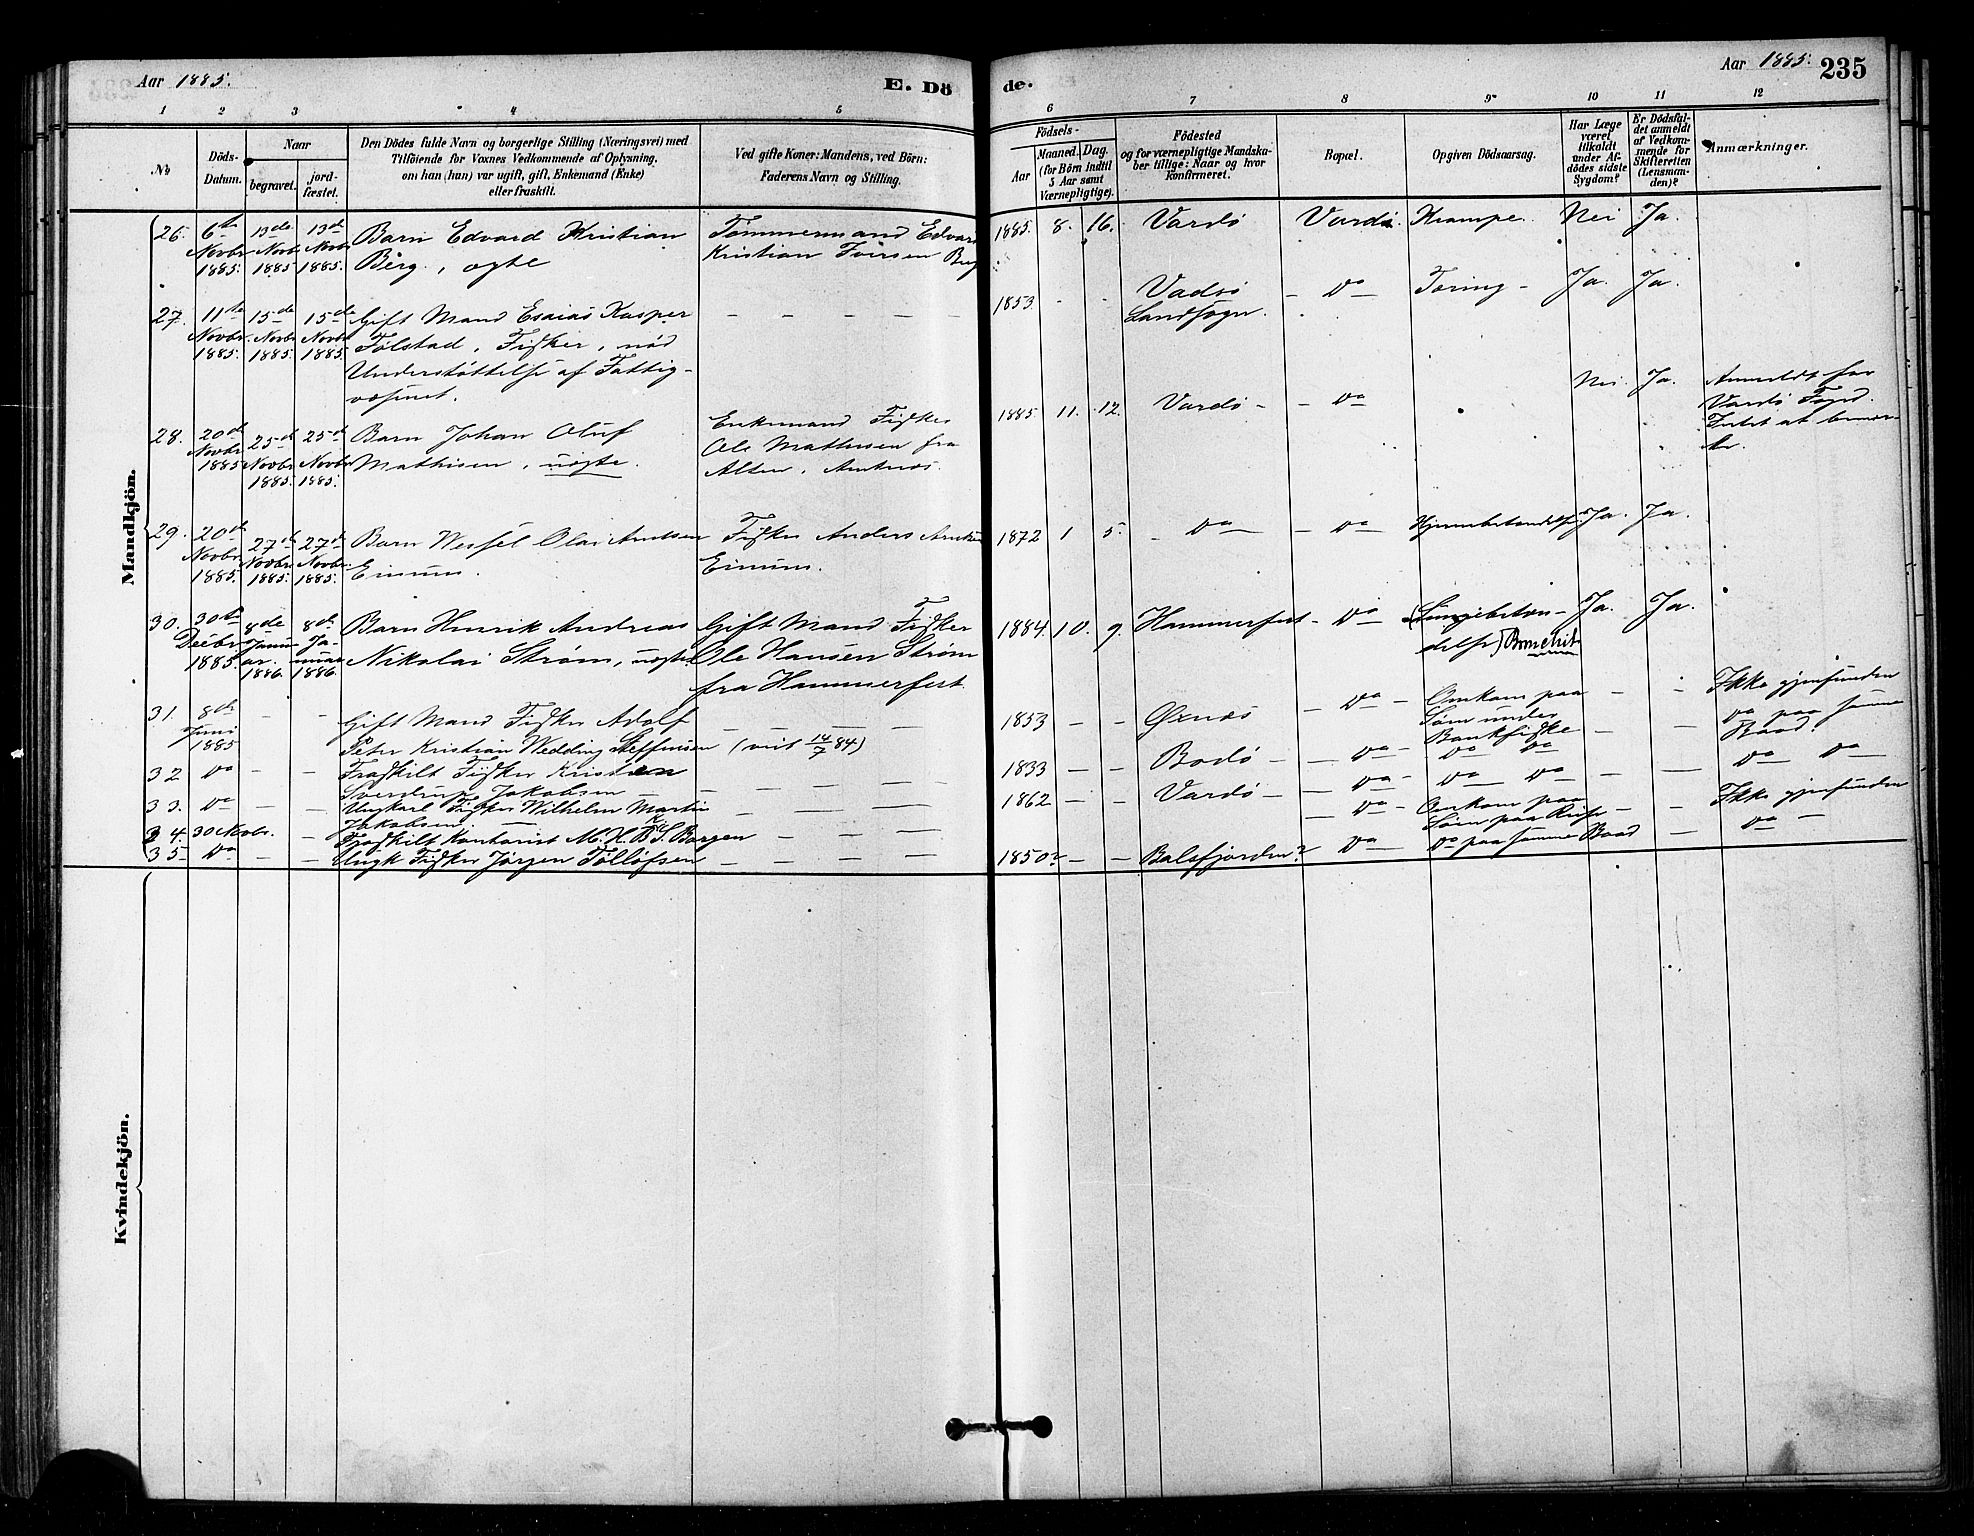 Aar 1885.
E. Dö
de.
Aar 1885. 235
1 2 3 4 5 6 7 8 9 10 11 12
No
Döds-
Datum.
Naar
begravet.
jord-
fæstet.
Den Dödes fulde Navn og borgerlige Stilling (Næringsvei) med
Tilföiende for Voxnes Vedkommende af Oplysning,
om han (hun) var ugift, gift, Enkemand (Enke)
eller fraskilt.
Ved gifte Koner: Mandens, ved Börn:
Faderens Navn og Stilling.
Födsels-
Aar
Maaned. Dag.
(for Börn indtil
5 Aar samt
Værnepligtige).
Födested
og for værnepligtige Mandska-
ber tillige: Naar og hvor
konfirmeret.
Bopæl.
Opgiven Dödsaarsag.
Har Læge
været
tilkaldt
under Af-
dödes sidste
Sygdom?
Er Dödsfal-
det anmeldt
af Vedkom-
mende for
Skifteretten
(Lensman-
den)?
Anmærkninger.
Mandkjön.
26. 6te Novbr 1885. 13de Novbr 1885 13de Novbr 1885. Barn Edvard Kristian
Berg, ægte
Tømmermand Edvard
Kristian Berg
1885. 8. 16. Vardö Vardö. Krampe. Nei Ja.
27. 11te Novbr. 1885. 15de Novbr 1885. 15de Novbr 1885. Gift Mand Esaias Kasper
Tølstad, Fisker, nød
Understøttelse af Fattig-
væsenet.
– – – – –
1853 - - Vadsö
Landsogn.
– Do – Tæring – Ja. Ja.
28. 20de Novbr 1885 25de Novbr 1885. 25de Novbr 1885. Barn Johan Oluf
Mathisen, uægte.
Enkemand Fisker
Ole Mathisen fra
Alten,
1885. 11. 12. Vardö – – Do Nei. Ja. Anmeldt for
Vardö Foged.
Intet at bemær-
ke.
29. 20de Novbr 1885. 27de Novbr 1885. 27de Novbr. 1885. Barn Wessel Olai Arntsen
Einum.
Fisker Anders Arntsen
Einum.
1872 1 5. – Do – Do Hjernebetændelse. Ja. Ja.
30. 30te Decbr 1885. 8de Januar. 1886. 8de Januar 1886. Barn Henrik Andreas
Nikolai Strøm, uægte
Gift Mand Fisker
Ole Hansen Strøm
fra Hammerfest.
1884. 10. 9. Hammerfest – Do (Lungebetæn-
delse) Ja. Ja.
31. 8de Juni 1885 – – Gift Mand Fisker Adolf
Peter Kristian Wedding Steffensen (viet 14/7 84)
1853 – – Øxnæs – Do – Omkom paa
Søen under
Bankfiske
– – Ikke gjenfunden
32 Do – – Fraskilt Fisker Kristian
Sverdrup Jakobsen – – –
1833 – – Bodö – Do – Do Do – – Do paa samme
Baad.
33. Do – – Ungkarl Fisker Wilhelm Martin
Jakobsen. – – –
1862 – – Vardö – Do – Do Do – – Do Do
34. 30 Novbr. – Fraskilt Kontorist M. H. B. S. Borgen
– Do – Omkom paa
Søen paa Reise
– – Ikke gjenfunden
35 Do – – Ungk Fisker Jørgen Tøllefsen – – – –
1850? – – Balsfjorden? Do Do paa samme Baad – Do –
Kvindekjön.